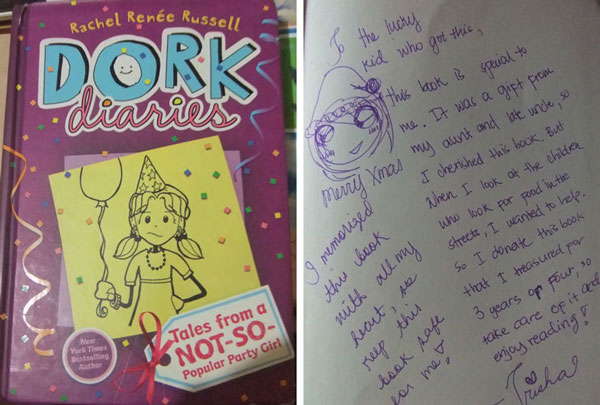 Rachel Renée Russell
DORK
diaries
New York Times
Bestselling
Author
Tales from a
NOT-SO-
Popular Party Girl
To the lucky
kid who got this,
this book is special to
me. It was a gift from
my aunt and late uncle, so
I cherished this book. But
When I look at the children
who look for food in the
streets, I wanted to help.
So I donate this book
that I treasured for
3 years or four, so
take care of it and
enjoy reading!
- Trisha
Merry Xmas
I memorized
this book
with all my
heart, so
keep this
book safe
for me!